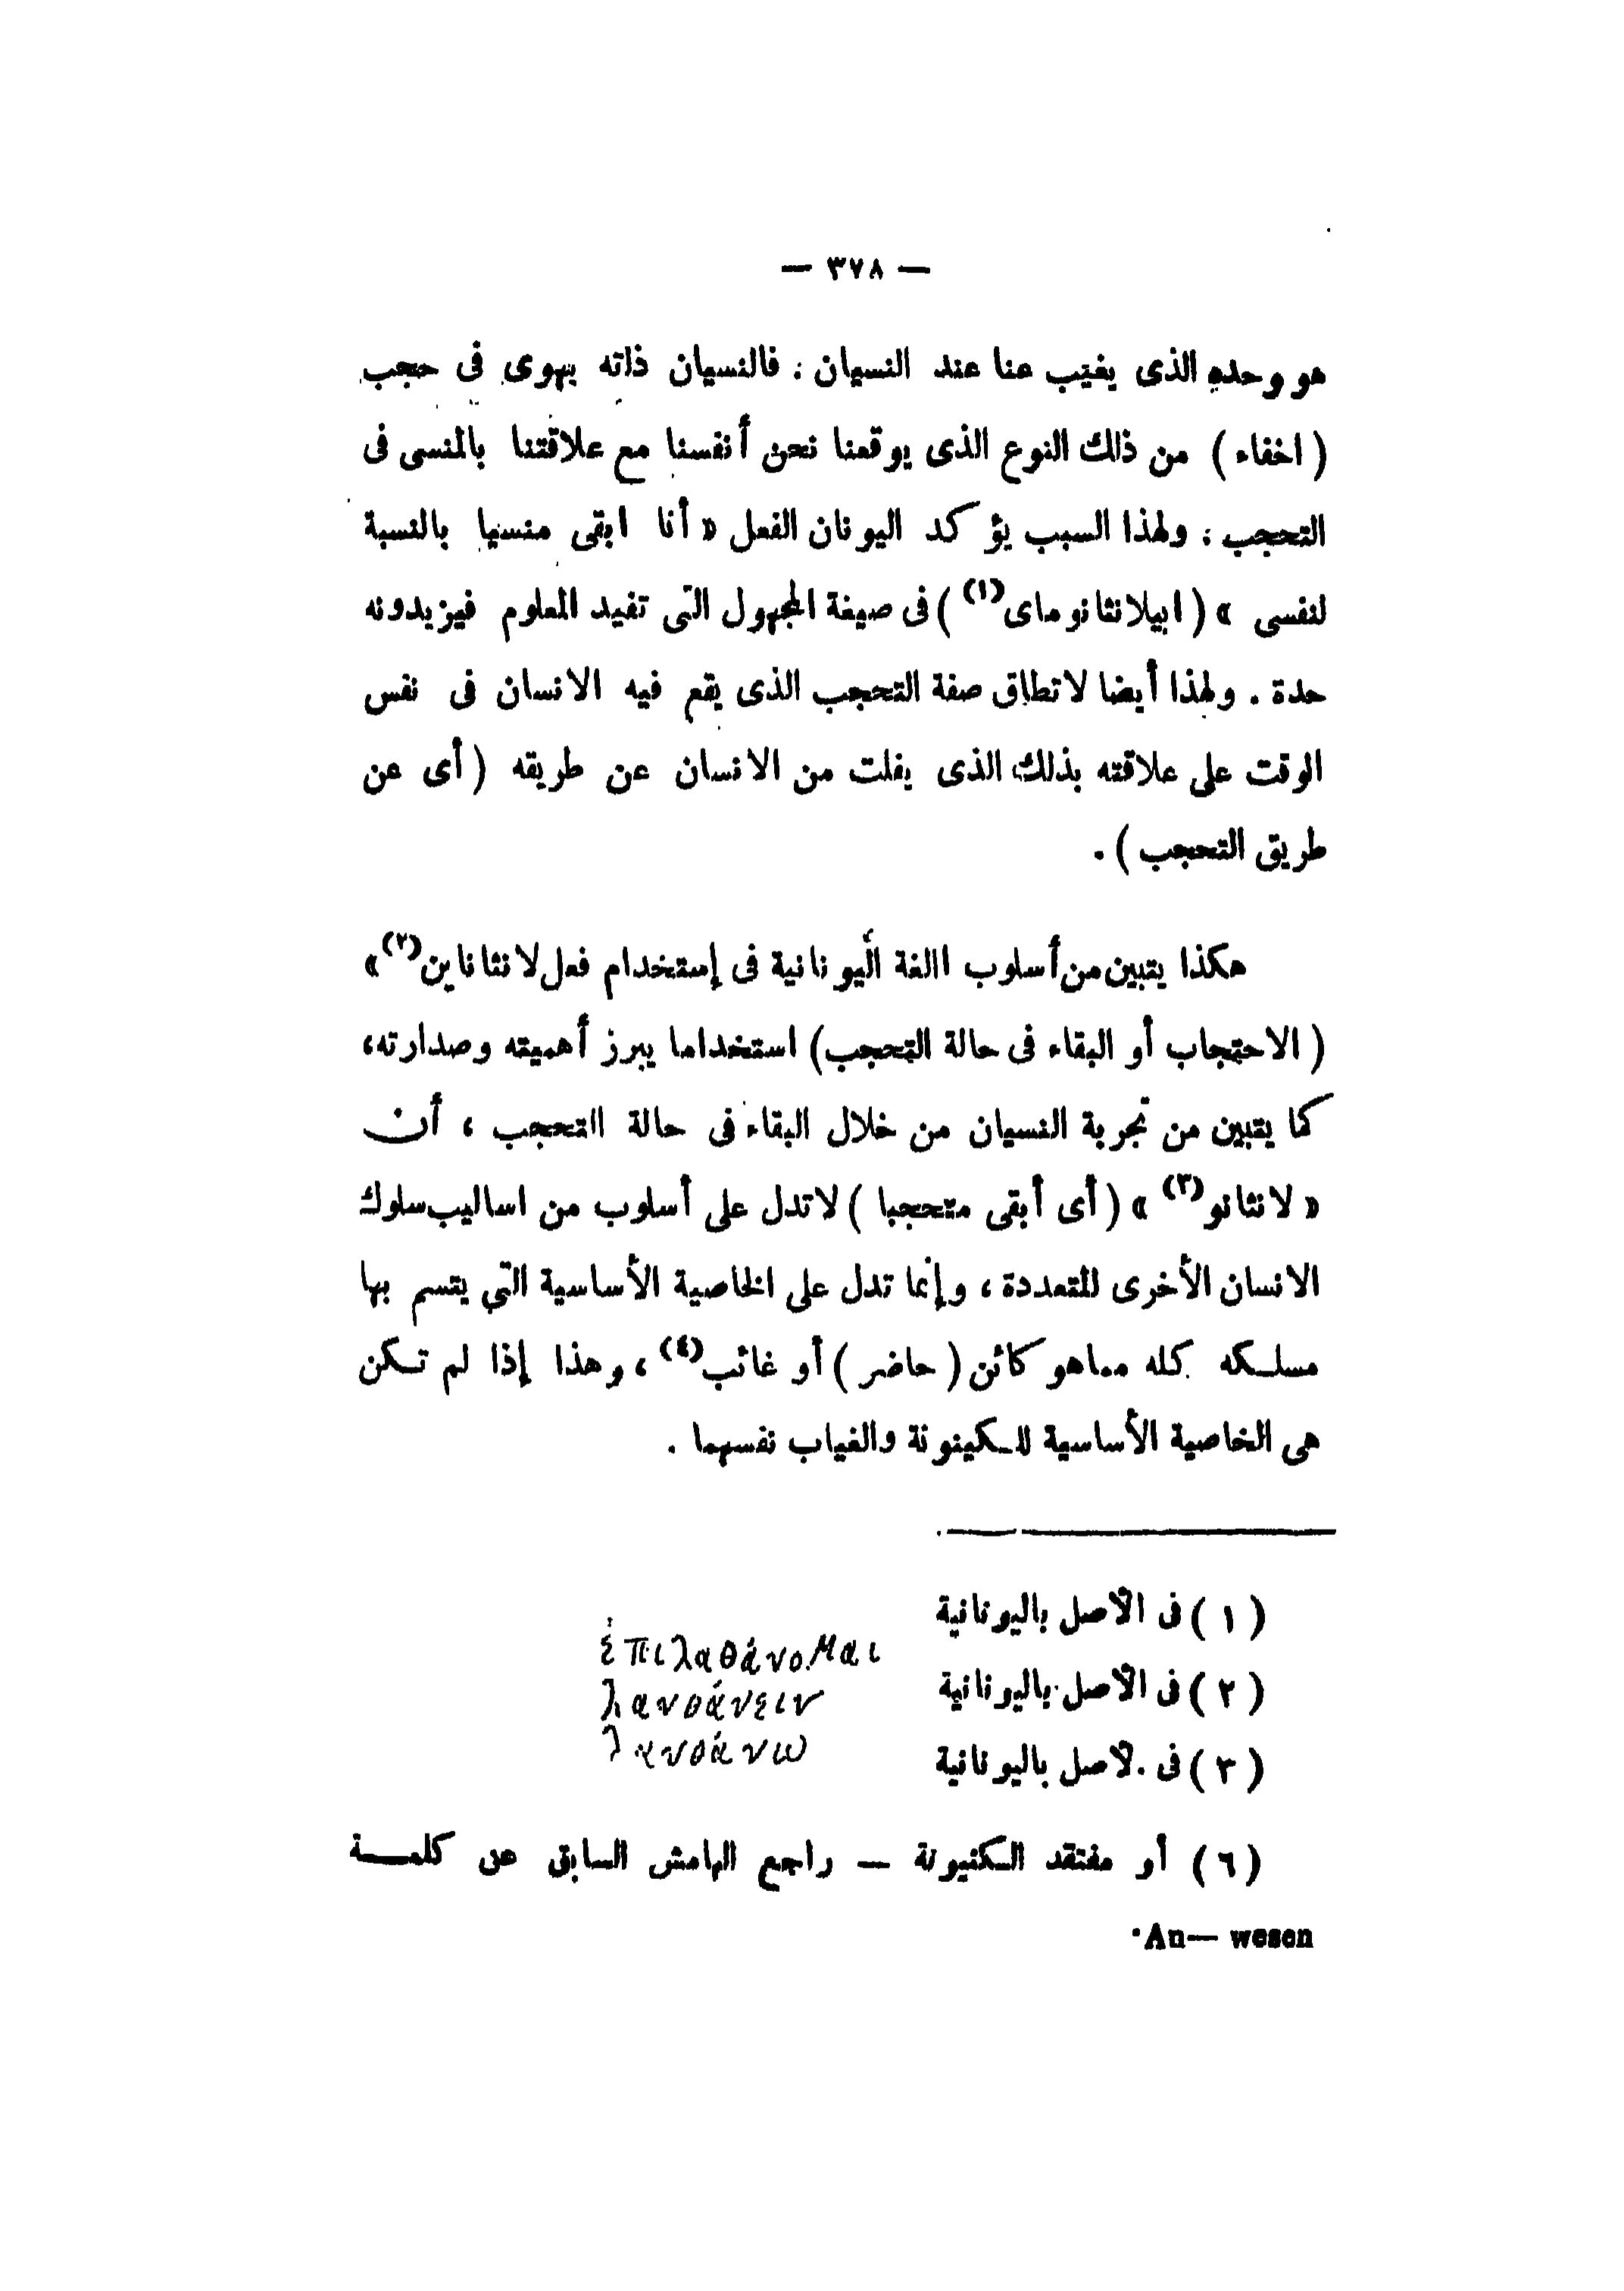 — ٣٧٨ —
هو وحده الذى يغيب عنا عند النسيان . فالنسيان ذاته يهوى فى حجب
( اخفاء ) من ذلك النوع الذى يوقعنا نحن أنفسنا مع علاقتنا بالمنسى فى
التحجب . ولهذا السبب يؤكد اليونان الفعل « أنا ابقى منسيا بالنسبة
لنفسى » ( ابيلانثانوماى(١) ) فى صيغة المجهول التى تفيد المعلوم فيزيدونه
حدة . ولهذا أيضا لاتطلق صفة التحجب الذى يقع فيه الانسان فى نفس
الوقت على علاقته بذلك الذى يفلت من الانسان عن طريقه ( أى عن
طريق التحجب ) .
هكذا يتبين من أسلوب اللغة اليونانية فى إستخدام فعل لانثاناين(٢) »
( الاحتجاب أو البقاء فى حالة التحجب ) استخداما يبرز أهميته وصدارته،
كما يتبين من تجربة النسيان من خلال البقاء فى حالة التحجب ، أن
« لانثانو(٣) » ( أى أبقى متحجبا ) لاتدل على أسلوب من اساليب سلوك
الانسان الأخرى المتعددة ، وإنما تدل على الخاصية الأساسية التي يتسم بها
مسلكه كله مماهو كائن ( حاضر ) أو غائب(٤) ، وهذا إذا لم تكن
هى الخاصية الأساسية للكينونة والغياب نفسهما .
( ١ ) فى الأصل باليونانية ἐπιλαθάνομαι
( ٢ ) فى الأصل باليونانية λανθάνειν
( ٣ ) فى الأصل باليونانية λανθάνω
( ٦ ) أو مفتقد الكنيونة — راجع الهامش السابق عن كلمة
An— wesen.